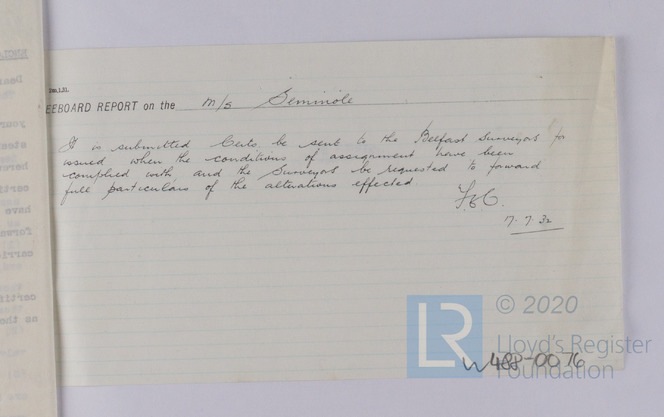 EEBOARD REPORT on the m/s Seminole
It is submitted Certs. be sent to the Belfast Surveyors for
issued when the conditions of assignment have been
complied with, and the Surveyors be requested to forward
full particulars of the alterations effected
7.7.32
LR
© 2020
Lloyd's Register
Foundation
W488-0076